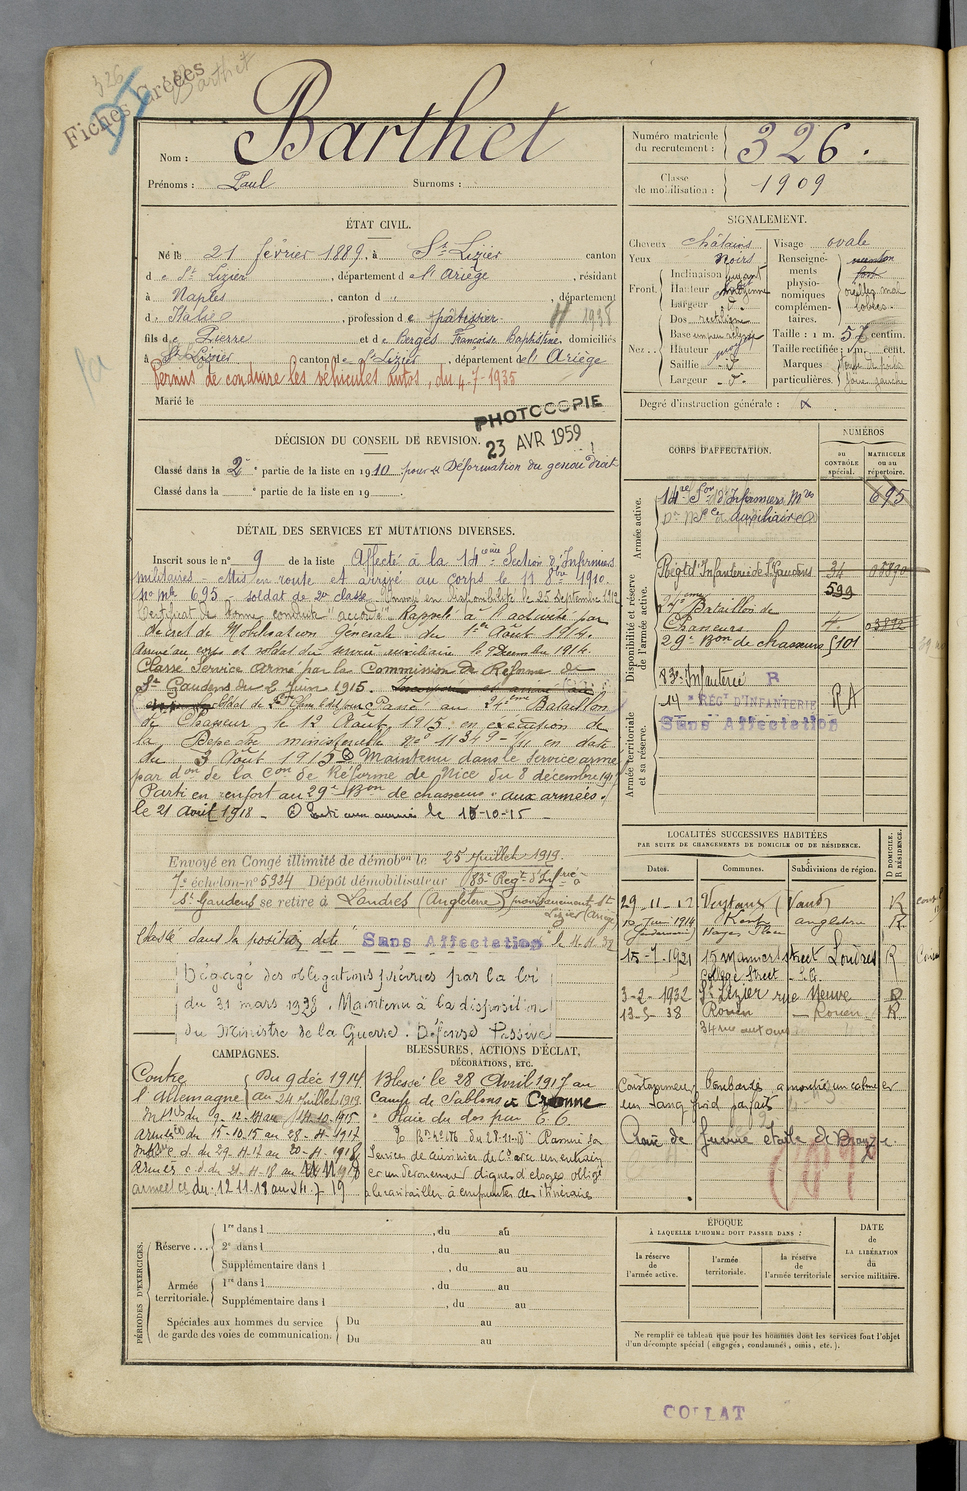 326 Barthet
Fiches Créées
Nom : Barthet
Prénoms : Paul Surnoms :
Numéro matricule du recrutement : 326.
Classe de mobilisation : 1909
ÉTAT CIVIL.
Né le 21 février 1889, à St Lizier canton
de St Lizier, département de l'Ariège, résidant
à Naples, canton d " , département
d Italie, profession de pâtissier 1938
fils de Pierre et de Bergès Françoise Baptistine, domiciliés
à St Lizier, canton de St Lizier, département de l'Ariège
Permis de conduire les véhicules autos, du 4-7-1935
Marié le
SIGNALEMENT.
Cheveux châtains
Yeux noirs
Front. Inclinaison fuyant
Hauteur moyenne
Largeur d°
Nez. Dos rectiligne
Base
Hauteur moy
Saillie d°
Largeur d°
Visage ovale
Renseignements physionomiques complémentaires.
oreilles mal
Taille : 1 m. 57 centim.
Taille rectifiée : 1 m. cent.
Marques particulières.
joue gauche
Degré d'instruction générale :
PHOTOCOPIE
23 AVR 1959
DÉCISION DU CONSEIL DE REVISION.
Classé dans la 2e partie de la liste en 1910 pour Déformation du genou droit
Classé dans la e partie de la liste en 19
CORPS D'AFFECTATION.
NUMÉROS
au CONTRÔLE spécial.
MATRICULE ou au répertoire.
Armée active.
14me Son d'Infirmiers Mres 695
auxiliaire
Disponibilité et réserve de l'armée active.
Régt d'Infanterie de St Gaudens 34
599
Bataillon de
Chasseurs
29e Bon de chasseurs 5101
Armée territoriale et sa réserve.
83e Infanterie R
14e RÉGT D'INFANTERIE RA
Sans Affectation
DÉTAIL DES SERVICES ET MUTATIONS DIVERSES.
Inscrit sous le n° 9 de la liste Affecté à la 14ème Section d'Infirmiers
militaires - Mis en route et arrivé au corps le 11 8bre 1910.
no mle 695 - soldat de 2e classe. Envoyé en disponibilité le 25 septembre 1912
Certificat de bonne conduite "accordé" Rappelé à l'activité par
décret de Mobilisation Générale du 1er Août 1914.
Arrivé au corps et soldat du service auxiliaire le 9 Décembre 1914.
Classé Service Armé par la Commission de Réforme de
St Gaudens du 2 Juin 1915.
Passé au 24ème Bataillon
de Chasseur le 12 Août 1915 en exécution de
la Dépêche ministérielle No 11349-1/11 en date
du 3 Août 1915 Maintenu dans le service armé
par don de la Con de Réforme de Nice du 8 décembre 1917
Parti en renfort au 29e Bon de chasseurs "aux armées"
le 21 Avril 1918 - Parti aux armées le 15-10-15 -
Envoyé en Congé illimité de démobon le 25 Juillet 1919.
7e échelon no 5924 Dépôt démobilisateur 83e Régt d'Infrie à
St Gaudens se retire à Londres (Angleterre) provisoirement St
Lizier (Ariège)
Classé dans la position dite Sans Affectation le
Dégagé des obligations prévues par la loi
du 31 mars 1928. Maintenu à la disposition
du Ministre de la Guerre. Défense Passive
LOCALITÉS SUCCESSIVES HABITÉES
PAR SUITE DE CHANGEMENTS DE DOMICILE OU DE RÉSIDENCE.
Dates. Communes. Subdivisions de région. D DOMICILE. R RÉSIDENCE.
29-11-12 Veytaux (Vaud) R
Juin 1914 Kent angleterre R
15-7-1931 15 Manners street Londres R
College Street
3-2-1932 St Lizier rue Neuve D
13-5-38 Rouen - Rouen R
34 rue aux ours
CAMPAGNES.
Contre l'Allemagne du 9 déc 1914 au 24 Juillet 1919.
Intre du 9-12-14 au 14-10-1915
Armées du 15-10-15 au 28-4-1917
Intre c.d. du 29-4-17 au 20-4-1918
Armées c.d. du 21-4-18 au 11-11-1918
armées cs du 12 11 18 au 24-7 19
BLESSURES, ACTIONS D'ÉCLAT,
DÉCORATIONS, ETC.
Blessé le 28 Avril 1917 au
Camp de Sablons à Craonne
" Plaie du dos par E.O.
du 28-11-18 Assure son
service de cuisinier de Cie avec un entrain
et un dévouement dignes d'éloges. Obligé
à le ravitailler à emprunter des itinéraires
constamment bombardés a montré un calme et
un sang froid parfaits
Croix de Guerre étoile de Bronze.
PÉRIODES D'EXERCICES.
Réserve . . . 1re dans l , du au
2e dans l , du au
Supplémentaire dans l , du au
Armée territoriale. 1re dans l , du au
Supplémentaire dans l , du au
Spéciales aux hommes du service de garde des voies de communication. Du au
Du au
ÉPOQUE
À LAQUELLE L'HOMME DOIT PASSER DANS :
la réserve de l'armée active.
l'armée territoriale.
la réserve de l'armée territoriale
DATE de LA LIBÉRATION du service militaire.
Ne remplir ce tableau que pour les hommes dont les services font l'objet
d'un décompte spécial (engagés, condamnés, omis, etc.).
COLLAT